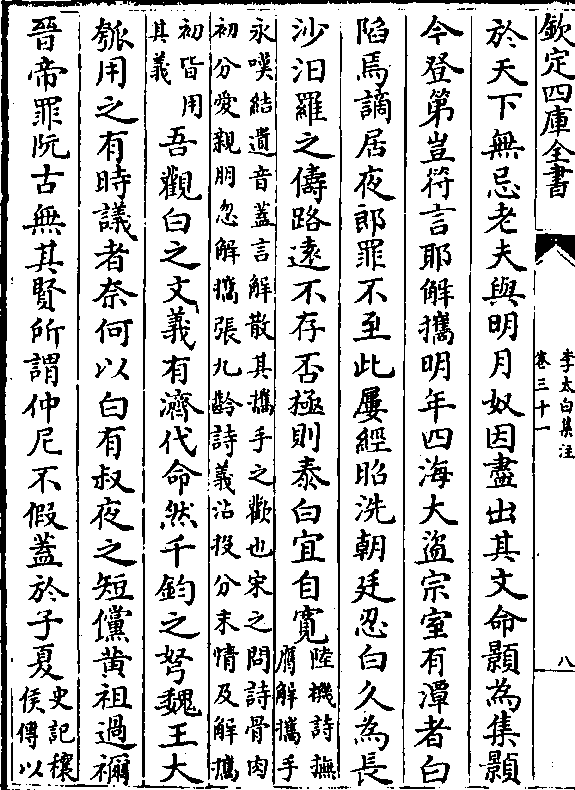 欽定四庫全書
李太白集注
卷三十一
八
於天下無忌老夫與明月奴因盡出其文命顥為集顥
今登第豈符言耶解攜明年四海大盜宗室有潭者白
陷焉謫居夜郎罪不至此屢經昭洗朝廷忍白久為長
沙汨羅之儔路遠不存否極則泰白宜自寛陸機詩撫
膺解攜手
永嘆結遺音蓋言解散其攜手之歡也宋之問詩骨肉
初分愛親朋忽解攜張九齡詩義沾投分末情及解攜
初皆用
其義吾觀白之文義有濟代命然千鈞之弩魏王大
瓠用之有時議者奈何以白有叔夜之短儻黄祖過禰
晉帝罪阮古無其賢所謂仲尼不假蓋於子夏史記穰
侯傳以